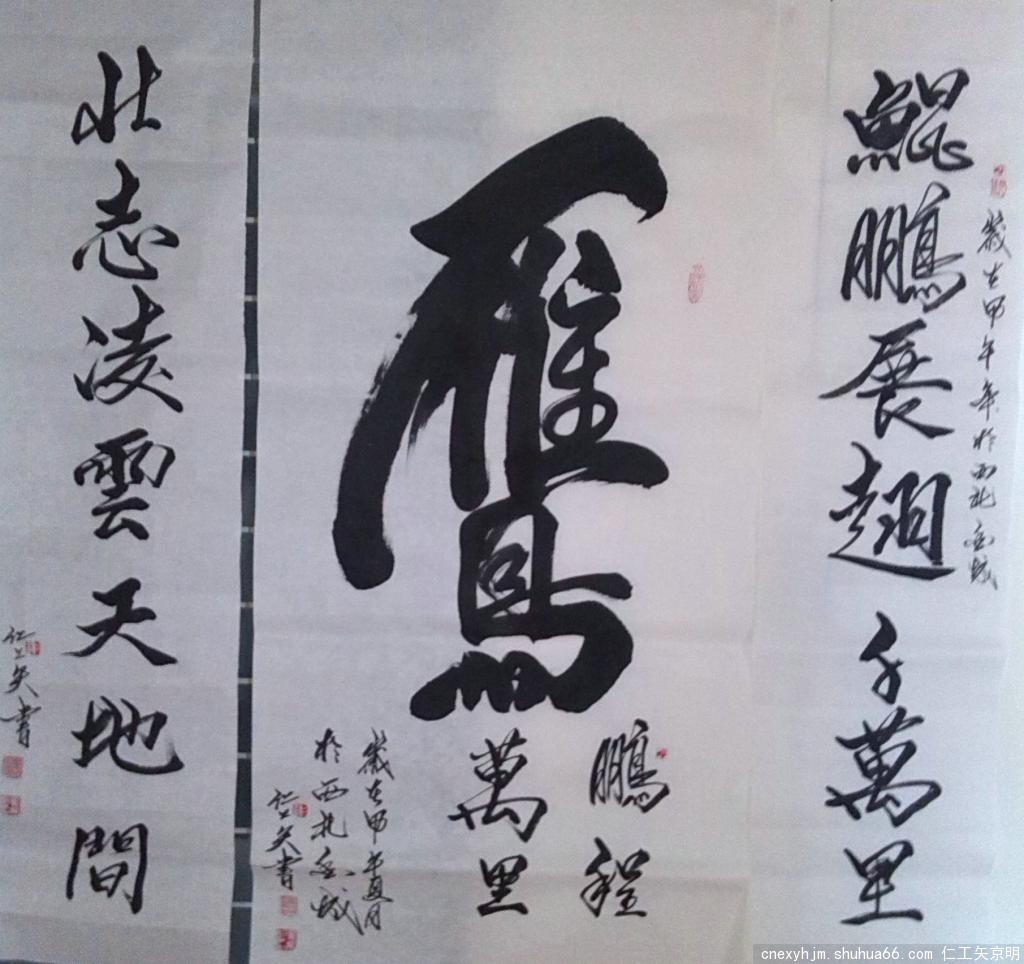 歲在甲午年於西北金城
鯤鵬展翅千萬里
鷹
鵬程
萬里
歲在甲午夏月
於西北金城
仁工矢書
壯志凌雲天地間
仁工矢書
cnexyhjm.shuhua66.com 仁工矢京明